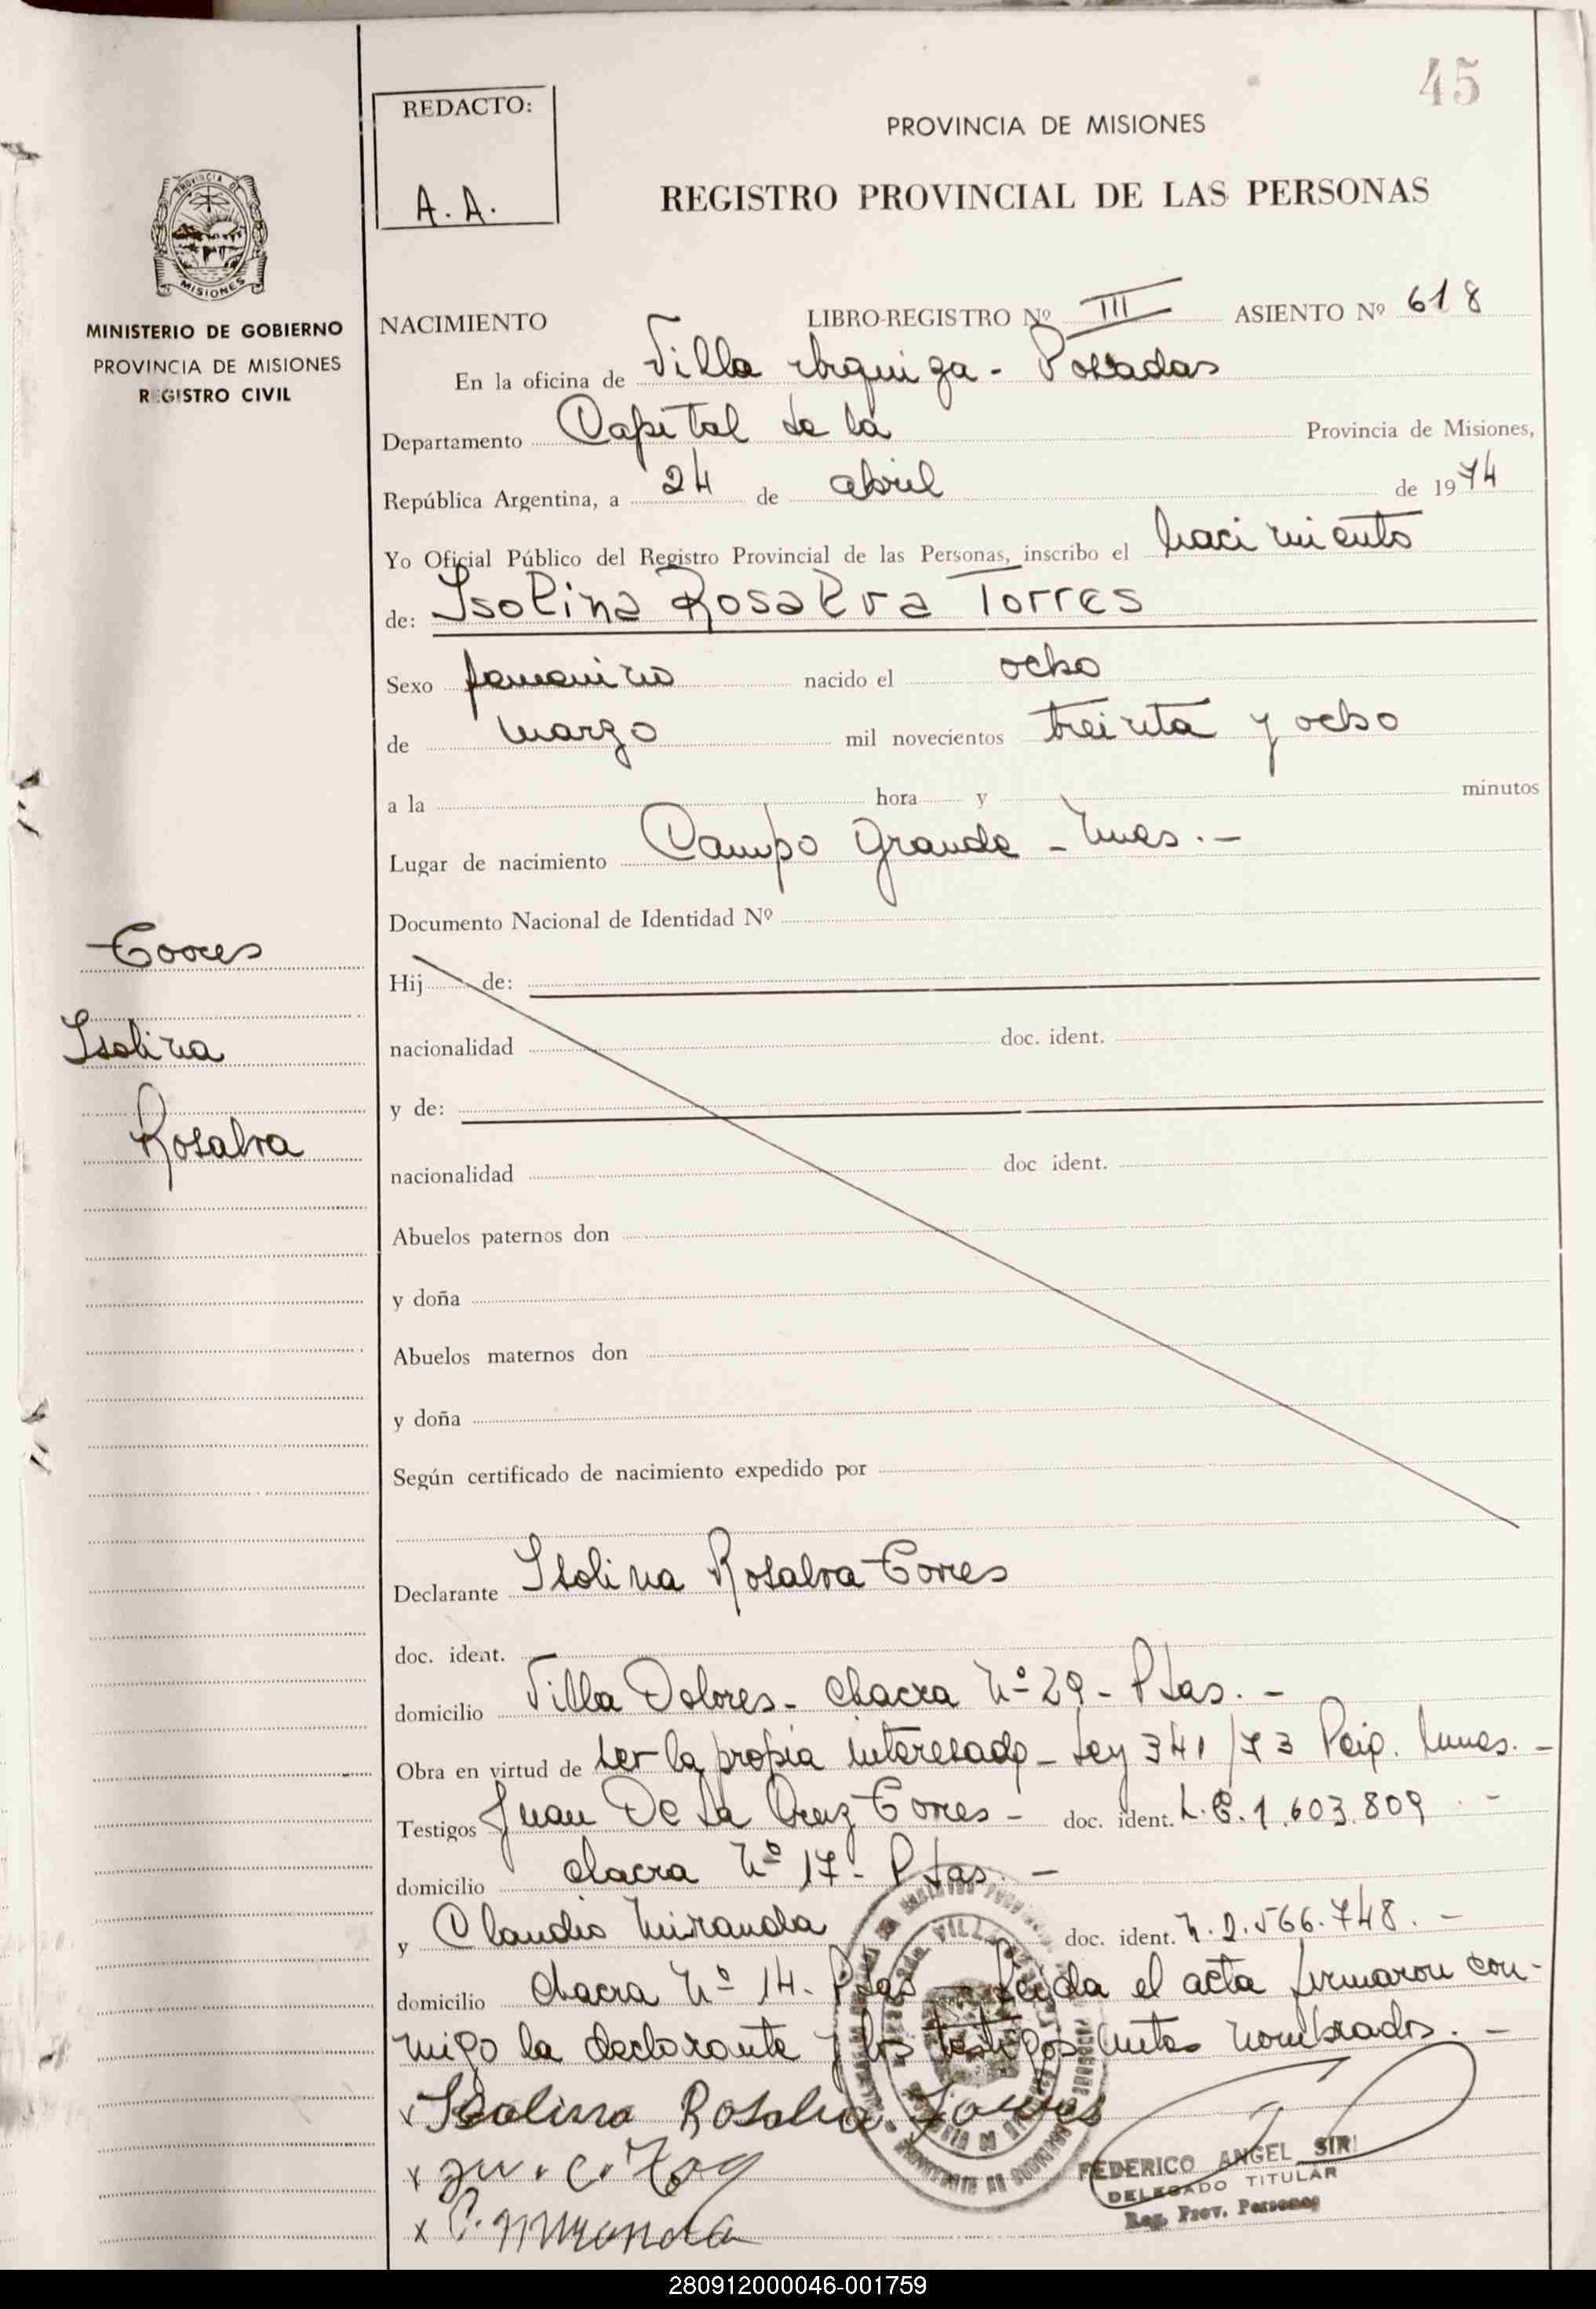 45
REDACTO:
A. A.
PROVINCIA DE MISIONES
REGISTRO PROVINCIAL DE LAS PERSONAS
PROVINCIA DE
MISIONES
MINISTERIO DE GOBIERNO
PROVINCIA DE MISIONES
REGISTRO CIVIL
NACIMIENTO LIBRO-REGISTRO Nº III ASIENTO Nº 618
En la oficina de Villa Urquiza - Posadas
Departamento Capital de la Provincia de Misiones,
República Argentina, a 24 de abril de 1974
Yo Oficial Público del Registro Provincial de las Personas, inscribo el nacimiento
de: Isolina Rosalva Torres
Sexo femenino nacido el ocho
de marzo mil novecientos treinta y ocho
a la hora y minutos
Lugar de nacimiento Campo Grande - Mnes. -
Documento Nacional de Identidad Nº
Torres
Isolina
Rosalva
Hij de:
nacionalidad doc. ident.
y de:
nacionalidad doc ident.
Abuelos paternos don
y doña
Abuelos maternos don
y doña
Según certificado de nacimiento expedido por
Declarante Isolina Rosalva Torres
doc. ident.
domicilio Villa Dolores - Chacra Nº 29 - Pdas. -
Obra en virtud de ser la propia interesada - Ley 341/73 Mnes. -
Testigos Juan De La Cruz Torres - doc. ident. L.E. 1.603.809 -
domicilio chacra Nº 17 - Pdas. -
y Claudio Miranda doc. ident. 2.566.748. -
domicilio Chacra Nº 14 - Pdas - Leida el acta firmaron con-
migo la declarante y los testigos antes nombrados. -
x Isolina Rosalva Torres
x
x C. Miranda
FEDERICO ANGEL SIRI
DELEGADO TITULAR
Reg. Prov. Personas
280912000046-001759